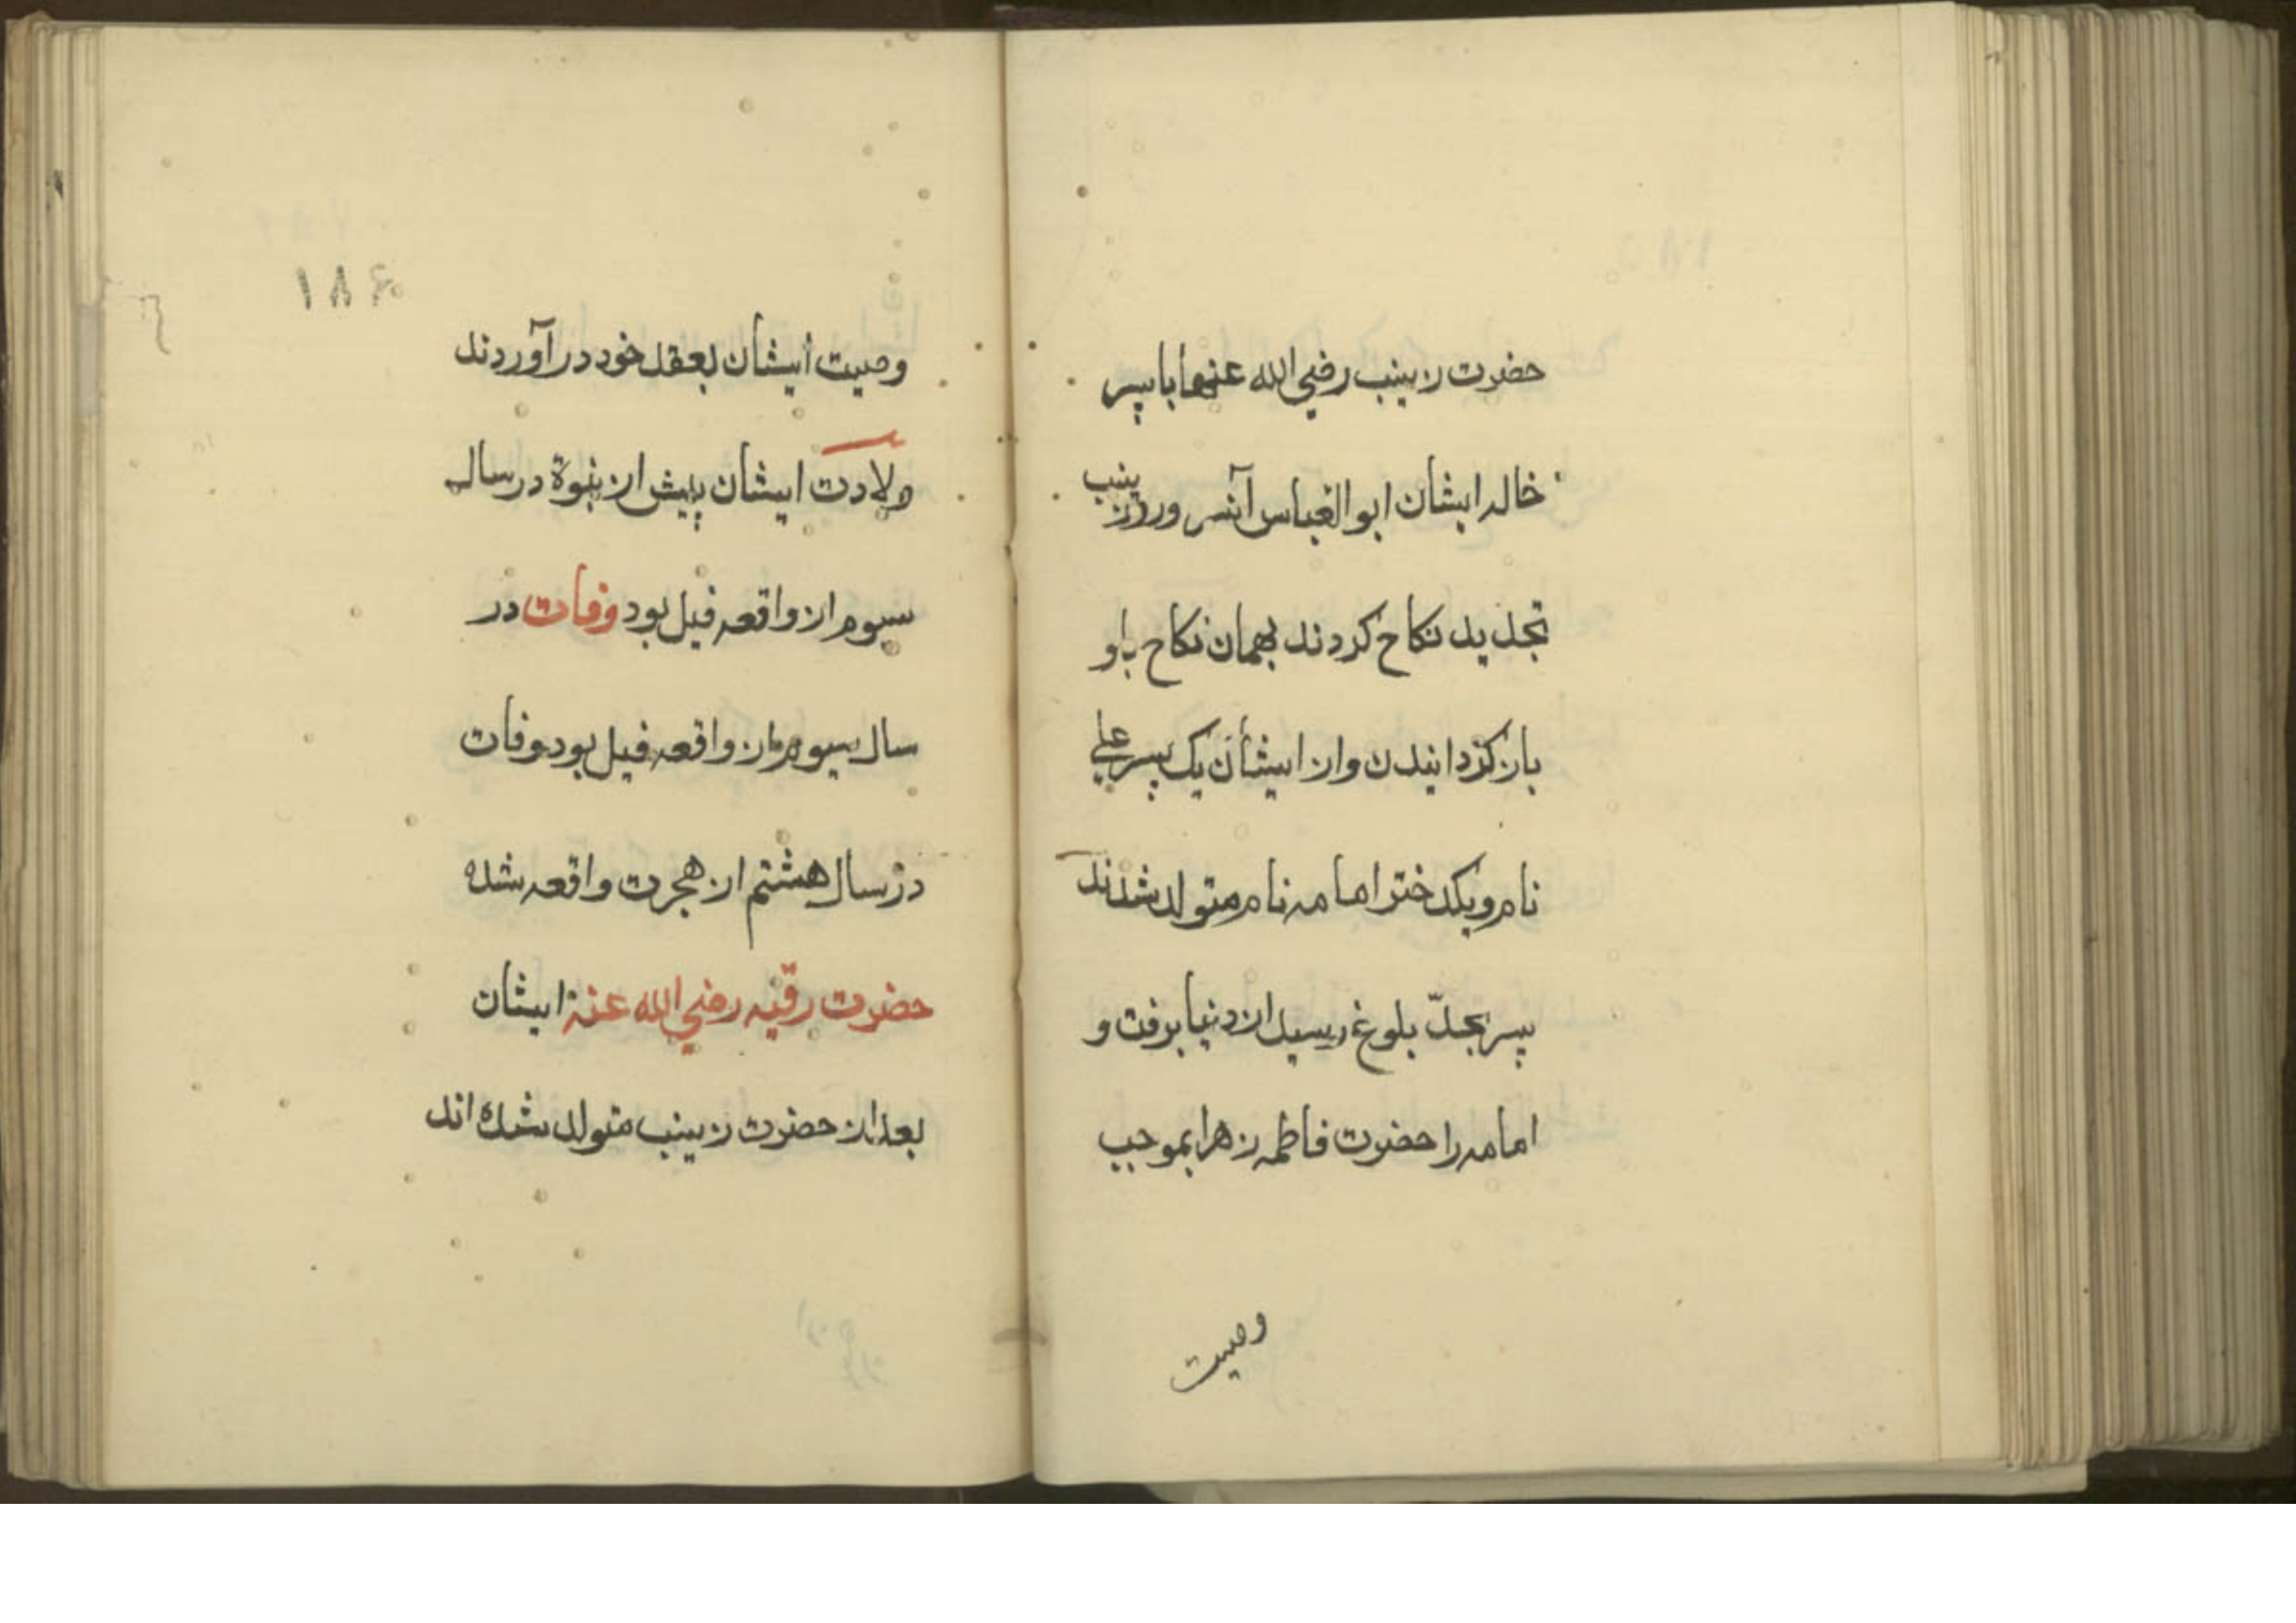 حضرت زینب رضي الله عنها با پسر
خاله ایشان ابو العباس آنسرور زینب
تجدید نکاح کردند بهمان نکاح باو
باز کردانیدن واز ایشان یک پسر علي
نام ویکدختر امامه نام متولد شدند
پسر بحدّ بلوغ رسید از دنیا برفت و
امامه را حضرت فاطمه زهرا بموجب
وصیت
۱۸۶
وصیت ایشان بعقد خود در آوردند
ولادت ایشان پیش از نبوة در سال
سیوم از واقعه فیل بود وفات در
سال سیوم از واقعه فیل بود وفات
در سال هشتم از هجرت واقعه شده
حضرت رقیّه رضي الله عنها ایشان
بعد از حضرت زینب متولد شده اند